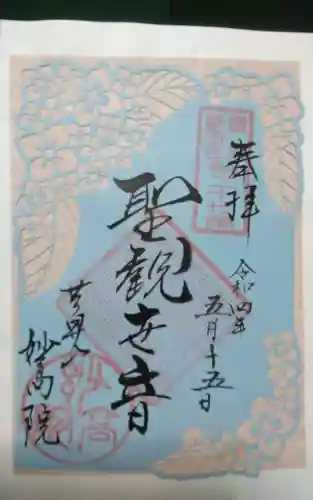 奉拝
令和四年
五月十五日
聖観世音
妙高院